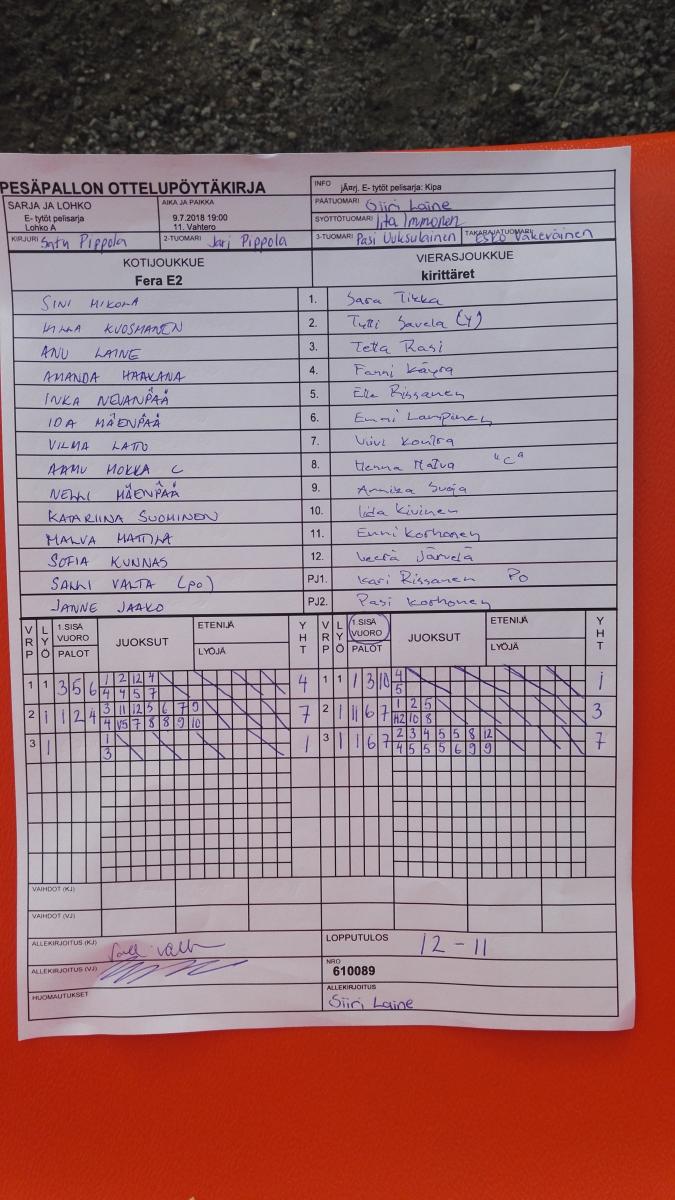 PESÄPALLON OTTELUPÖYTÄKIRJA
INFO jÃ¤rj. E- tytöt pelisarja: Kipa
SARJA JA LOHKO
E- tytöt pelisarja
Lohko A
AIKA JA PAIKKA
9.7.2018 19:00
11. Vahtero
PÄÄTUOMARI Siiri Laine
SYÖTTÖTUOMARI Iita Immonen
KIRJURI Satu Pippola 2-TUOMARI Jari Pippola 3-TUOMARI Pasi Uuksulainen TAKARAJATUOMARI Esko Väkeväinen
KOTIJOUKKUE VIERASJOUKKUE
Fera E2 kirittäret
SINI MIKOLA 1. Sara Tikka
KUOSMANEN 2. Tytti Savela (Y)
ANU LAINE 3. Tetta Rasi
AMANDA HAAKANA 4. Fanni Käyrä
INKA NEVANPÄÄ 5. Ella Rissanen
IDA MÄENPÄÄ 6. Emmi Lampinen
VILMA LATTU 7. Viivi Kontra
AAMU MOKKA C 8. Henna "C"
NELLI MÄENPÄÄ 9. Annika Suoja
KATARIINA SUOMINEN 10. Iida Kivinen
MALVA MATTILA 11. Enni Korhonen
SOFIA KUNNAS 12. Veera Järvelä
SALLI VALTA (po) PJ1. Kari Rissanen Po
JANNE JAAKO PJ2. Pasi Korhonen
VRP LYÖ 1.SISÄ VUORO PALOT JUOKSUT ETENIJÄ LYÖJÄ YHT VRP LYÖ 1.SISÄ VUORO PALOT JUOKSUT ETENIJÄ LYÖJÄ YHT
1 1 3 5 6 1 2 12 4 4 1 1 1 3 10 4 1
4 4 5 7 5
2 1 1 2 4 3 11 12 5 6 7 9 7 2 1 11 6 7 1 2 5 3
4 V5 7 8 8 9 10 H2 10 8
3 1 1 1 3 1 1 6 7 2 3 4 5 5 8 12 7
3 4 5 5 5 6 9 9
VAIHDOT (KJ)
VAIHDOT (VJ)
ALLEKIRJOITUS (KJ) LOPPUTULOS 12 - 11
ALLEKIRJOITUS (VJ) NRO
610089
HUOMAUTUKSET ALLEKIRJOITUS
Siiri Laine